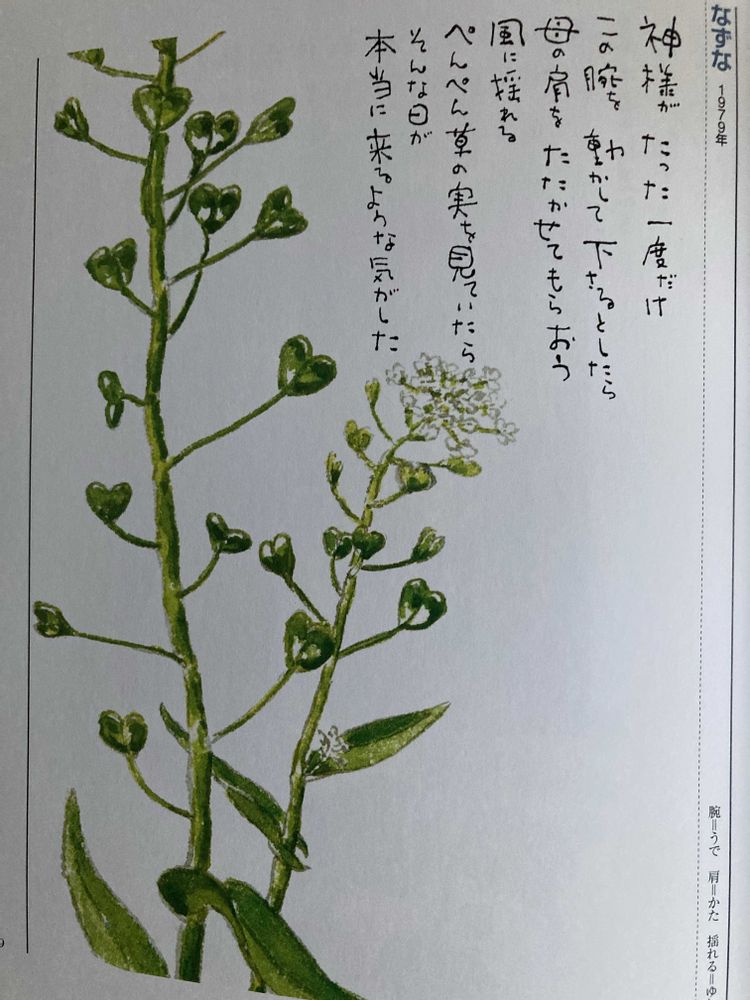 なずな 1979年
神様が たった一度だけ
この腕を 動かして下さるとしたら
母の肩を たたかせてもらおう
風に揺れる
ぺんぺん草の実を見ていたら
そんな日が
本当に来るような気がした
腕=うで 肩=かた 揺れる=ゆ
9